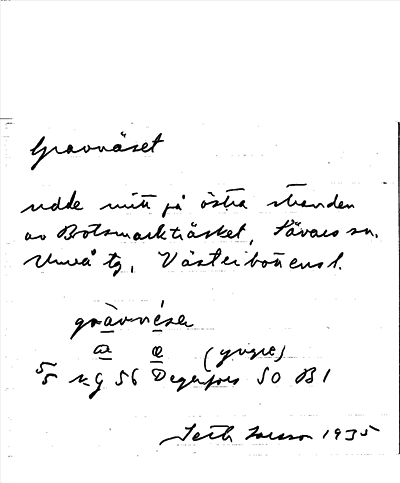 Gravnäset
udde mitt på östra stranden
av Botsmarkträsket, Sävars sn.
Umeå tg, Västerbottens l.
gràvnésa
a e (yngre)
55 kg 56 Degerfors SO B1
Seth 1935